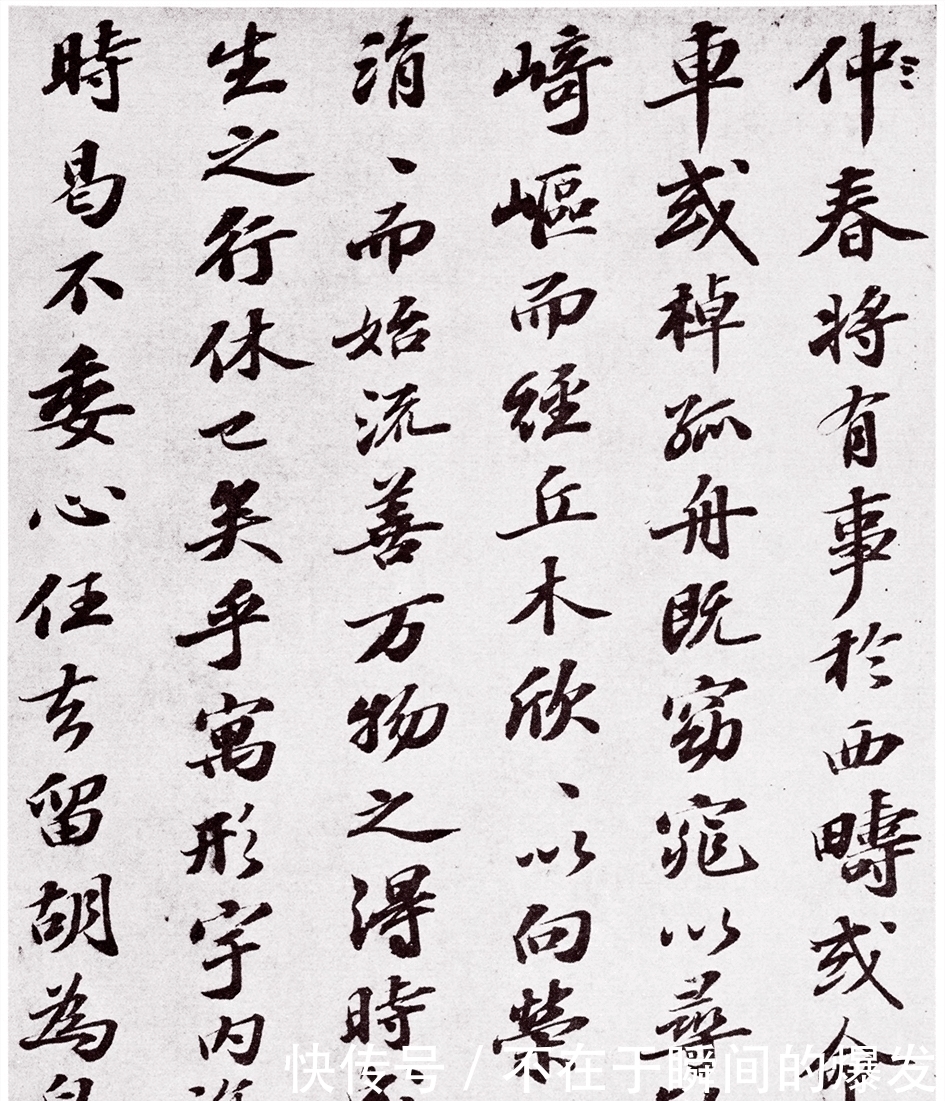 仲春将有事於西疇或命
車或棹孤舟既窈窕以尋
崎嶇而經丘木欣、以向榮
涓、而始流善万物之得時
生之行休已矣乎寓形宇内
時曷不委心任去留胡為
快传号 / 不在于瞬间的爆发